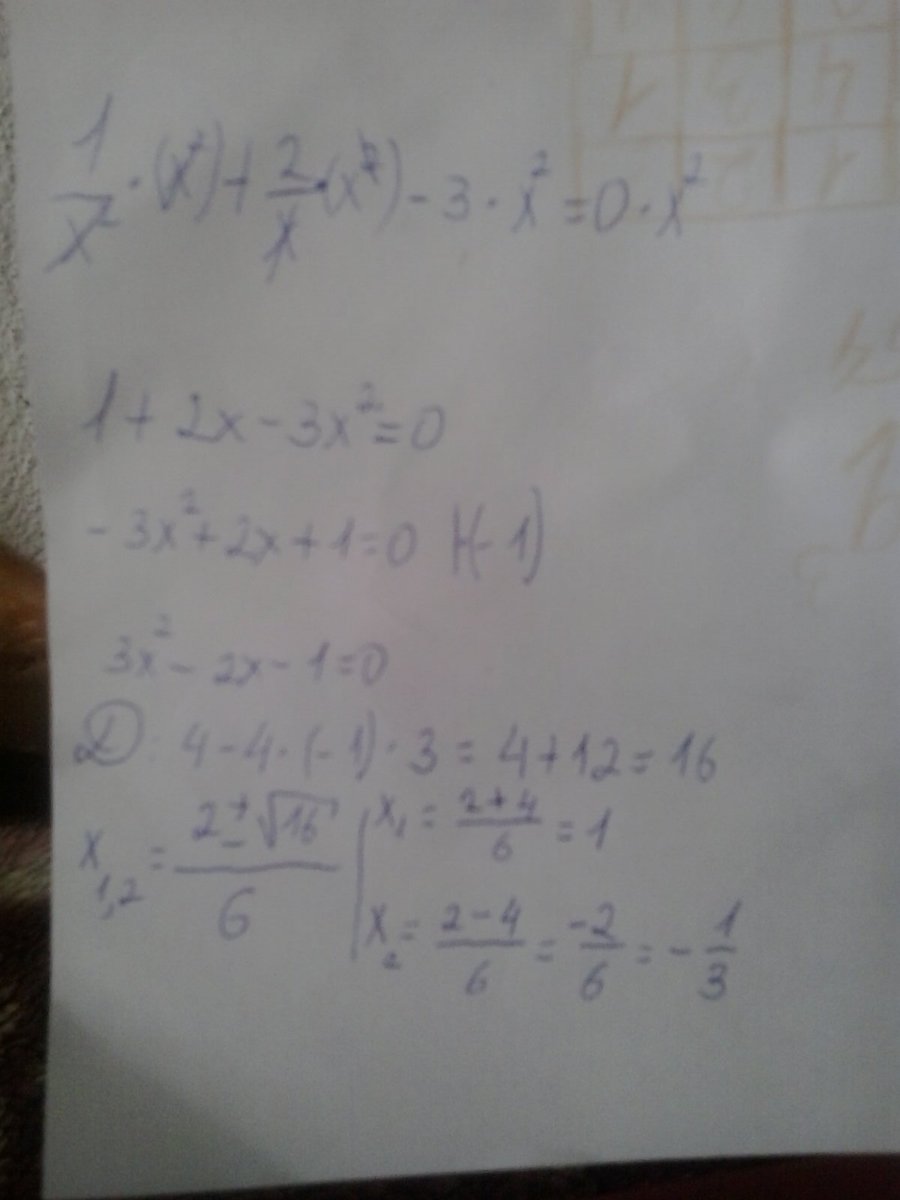 1/x² · (x²) + 2/x · (x²) - 3 · x² = 0 · x²
1 + 2x - 3x² = 0
- 3x² + 2x + 1 = 0 |·(-1)
3x² - 2x - 1 = 0
D: 4 - 4 · (-1) · 3 = 4 + 12 = 16
x₁,₂ = (2 ± √16)/6 | x₁ = (2 + 4)/6 = 1
x₂ = (2 - 4)/6 = -2/6 = - 1/3